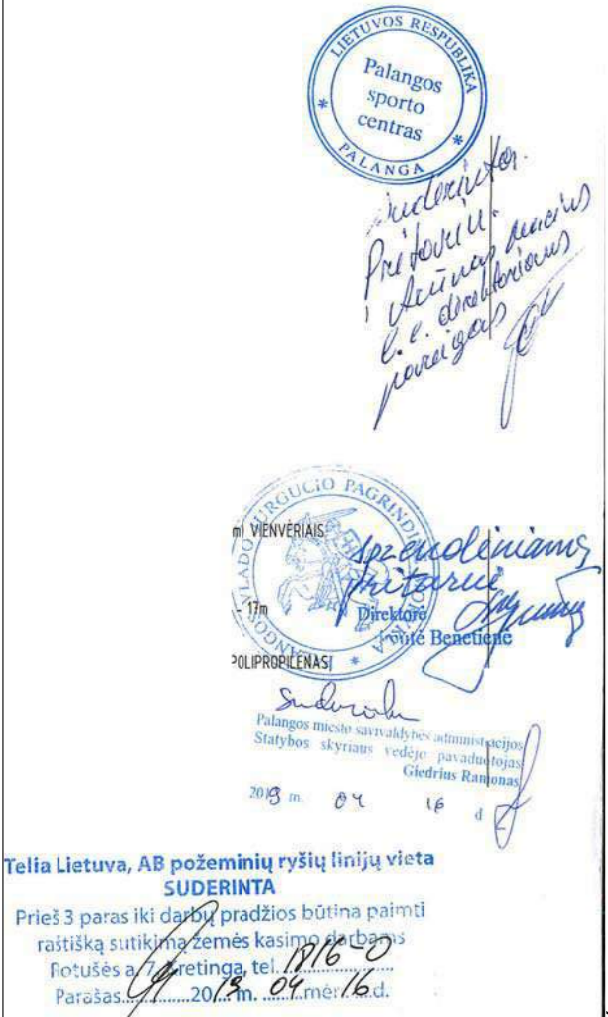 LIETUVOS RESPUBLIKA
Palangos
sporto
centras
* PALANGA *
Suderinta.
Pritariu.
l. e. direktoriaus
pareigas
VLADO JURGUČIO PAGRINDINĖ MOKYKLA
PALANGOS
m) VIENVĖRIAIS
Sprendiniams
pritariu
- 17m
Direktorė
Benetienė
POLIPROPILENAS)
Palangos miesto savivaldybės administracijos
Statybos skyriaus vedėjo pavaduotojas
Giedrius Ramonas
2019 m. 04 16 d
Telia Lietuva, AB požeminių ryšių linijų vieta
SUDERINTA
Prieš 3 paras iki darbų pradžios būtina paimti
raštišką sutikimą žemės kasimo darbams
Rotušės a. 7, Kretinga, tel. 1816-0
Parašas............2019 m. 04 mėn. 16 d.